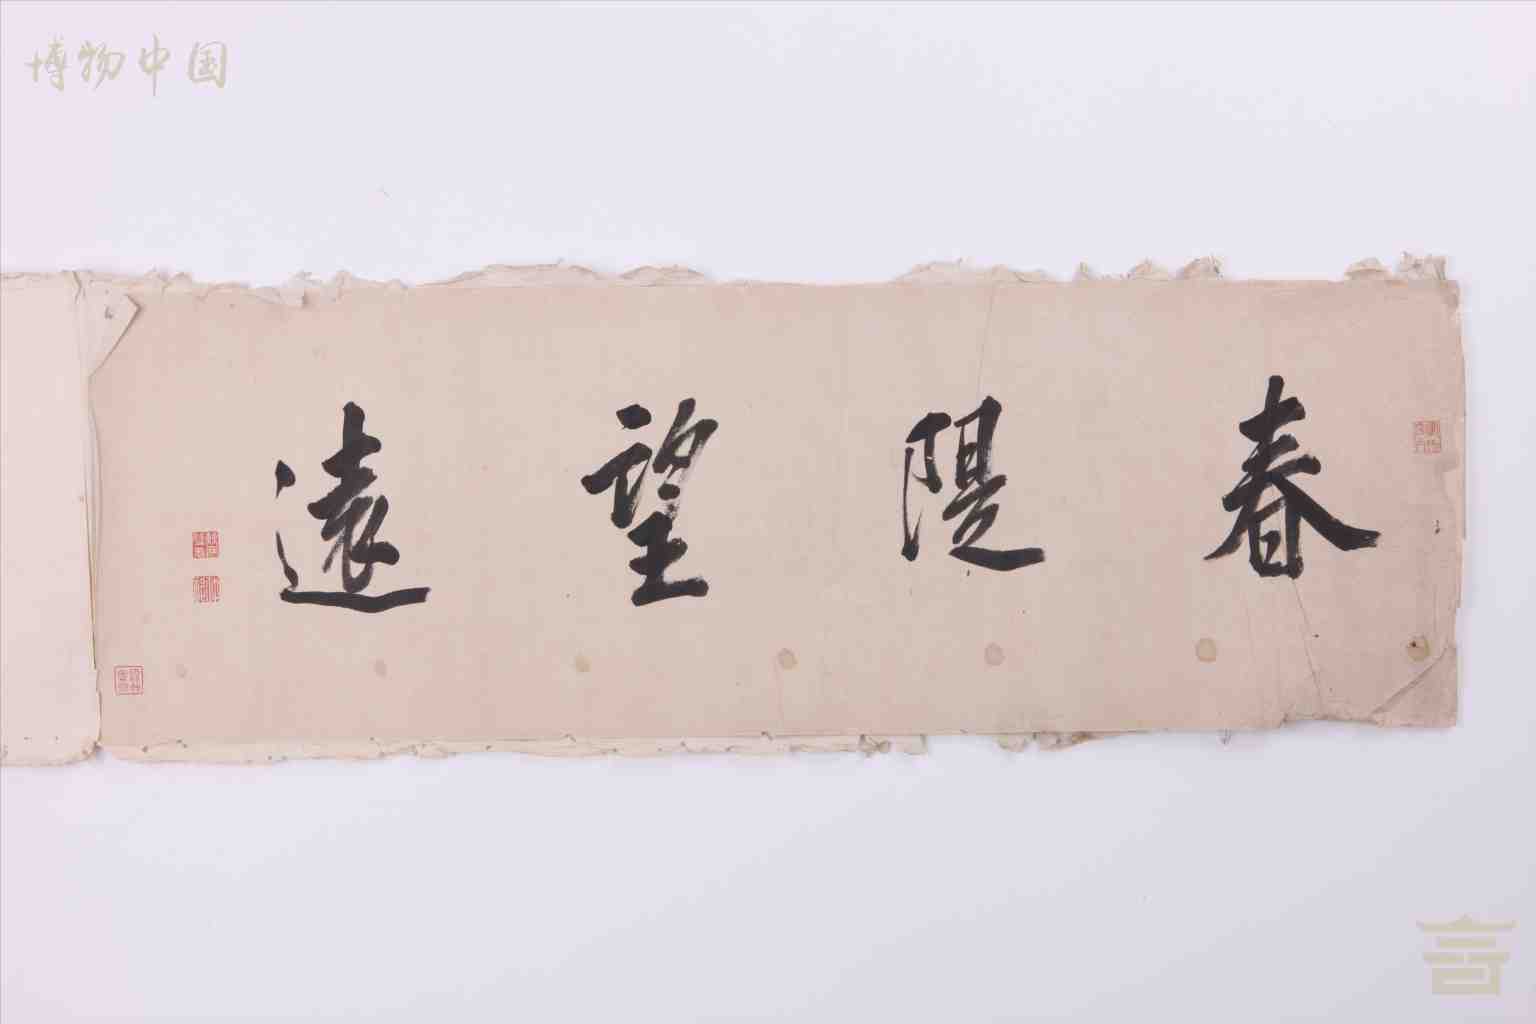 博物中国
春隄望遠